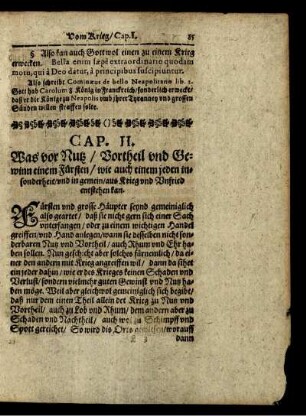 Vom Krieg / Cap. I. 25
§ Also kan auch Gott wol einen zu einem Krieg
erwecken. Bella enim sæpè extraordinario quodam
motu, qui à Deo datur, à principibus suscipiuntur.
Also schreibt Cominæus de bello Neapolitanis lib. 1.
Gott hab Carolum 8 König in Franckreich / sonderlich erweckt /
daß er die Könige zu Neapolis umb jhrer Tyranney und grossen
Sünden willen straffen solte.
CAP. II.
Was vor Nutz / Vortheil vnd Ge-
winn einem Fürsten / wie auch einem jeden in-
sonderheit / vnd in gemein / aus Krieg vnd Vnfried
entstehen kan.
Fürsten vnd grosse Häupter seynd gemeiniglich
also geartet / daß sie nicht gern sich einer Sach
vnterfangen / oder zu einem wichtigen Handel
greiffen vnd Hand anlegen / wann sie desselben nicht son-
derbaren Nutz vnd Vortheil / auch Rhum vnd Ehr ha-
ben sollen. Nun geschicht aber solches fürnemlich / da ei-
ner den andern mit Krieg angreiffen wil / dann da sihet
ein jeder dahin / wie er des Krieges keinen Schaden vnd
Verlust / sondern vielmehr guten Gewinst vnd Nutz ha-
ben möge. Weil aber gleichwol gemeiniglich sich begibt /
daß nur dem einen Theil allein der Krieg zu Nutz vnd
Vortheil / auch zu Lob vnd Rhum / dem andern aber zu
Schaden vnd Nachtheil / auch wol zu Schimpff vnd
Spott gereichet / So wird dis Orts gewiesen / worauff
dann